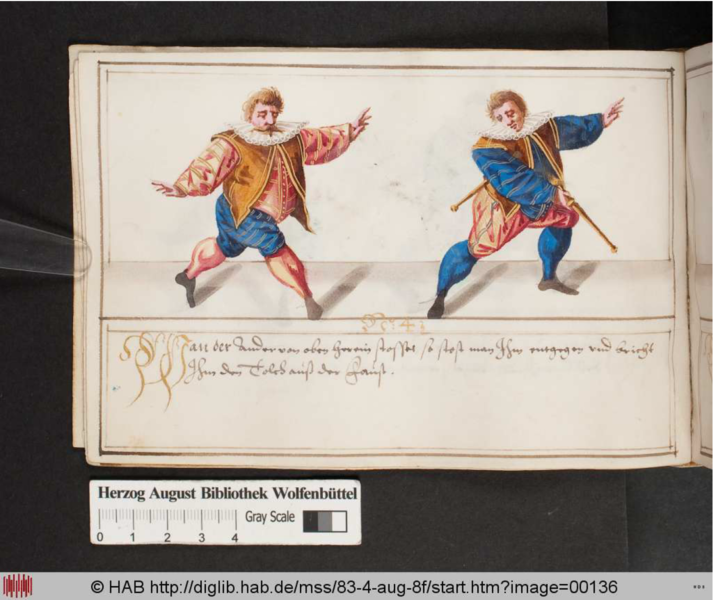 No: 43
Wan der Ander von oben herein stosset so stost man Ihm entgegen vnd bricht
Ihm den Tolch auß der Faust.
Herzog August Bibliothek Wolfenbüttel
0 1 2 3 4
Gray Scale
© HAB http://diglib.hab.de/mss/83-4-aug-8f/start.htm?image=00136